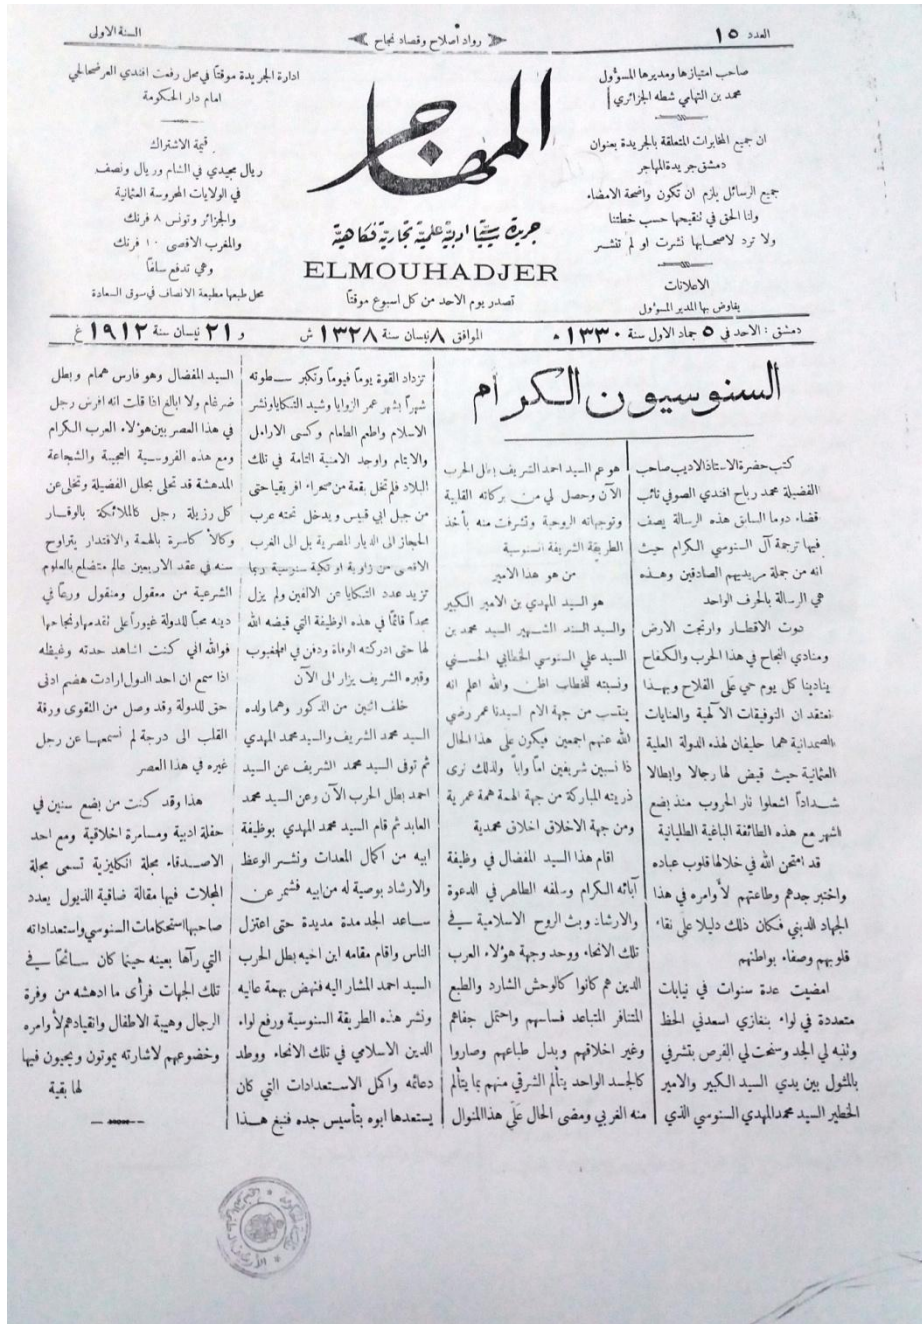 العدد ١٥
رواد اصلاح وقصاد نجاح
السنة الاولى
صاحب امتيازها ومديرها المسؤول
محمد بن التهامي شطه الجزائري
ان جميع المخابرات المتعلقة بالجريدة بعنوان
دمشق جريدة المهاجر
جميع الرسائل يلزم ان تكون واضحة الامضاء
ولنا الحق في تنقيحها حسب خطتنا
ولا ترد لاصحابها نشرت او لم تنشر
الاعلانات
يفاوض بها المدير المسؤول
المهاجر
جريدة سياسية ادبية علمية تجارية فكاهية
ELMOUHADJER
تصدر يوم الاحد من كل اسبوع موقتا
ادارة الجريدة موقتا في محل رفعت افندي العرضحالجي
امام دار الحكومة
قيمة الاشتراك
ريال مجيدي في الشام وريال ونصف
في الولايات المحروسة العثمانية
والجزائر وتونس ٨ فرنك
والمغرب الاقصى ١٠ فرنك
وهي تدفع سلفا
محل طبعها مطبعة الانصاف في سوق السعادة
دمشق : الاحد في ٥ جماد الاول سنة ١٣٣٠ ه
الموافق ٨ نيسان سنة ١٣٢٨ ش
و ٢١ نيسان سنة ١٩١٢ غ
السنوسيون الكرام
كتب حضرة الاستاذ الاديب صاحب
الفضيلة محمد رباح افندي الصوفي نائب
قضاء دوما السابق هذه الرسالة يصف
فيها ترجمة آل السنوسي الكرام حيث
انه من جملة مريديهم الصادقين وهذه
هي الرسالة بالحرف الواحد
دوت الاقطار وارتجت الارض
ومنادي النجاح في هذا الحرب والكفاح
ينادينا كل يوم حي على الفلاح وبهذا
نعتقد ان التوفيقات الآلهية والعنايات
الصمدانية هما حليفان لهذه الدولة العلية
العثمانية حيث قيض لها رجالا وابطالا
شداداً اشعلوا نار الحروب منذ بضع
اشهر مع هذه الطائفة الباغية الطليانية
قد امتحن الله في خلالها قلوب عباده
واختبر جدهم وطاعتهم لأوامره في هذا
الجهاد الديني فكان ذلك دليلا على نقاء
قلوبهم وصفاء بواطنهم
امضيت عدة سنوات في نيابات
متعددة في لواء بنغازي اسعدني الحظ
ونبه لي الجد وسنحت لي الفرص بتشرفي
بالمثول بين يدي السيد الكبير والامير
الخطير السيد محمد المهدي السنوسي الذي
هو عم السيد احمد الشريف بطل الحرب
الآن وحصل لي من بركاته القلبية
وتوجهاته الروحية وتشرفت منه بأخذ
الطريقة الشريفة السنوسية
من هو هذا الامير
هو السيد المهدي بن الامير الكبير
والسيد السند الشهير السيد محمد بن
السيد علي السنوسي الخطابي الحسني
ونسبته للخطاب اظن والله اعلم انه
ينتسب من جهة الام لسيدنا عمر رضي
الله عنهم اجمعين فيكون على هذا الحال
ذا نسبين شريفين اماً واباً ولذلك نرى
ذريته المباركة من جهة الهمة همة عمرية
ومن جهة الاخلاق اخلاق محمدية
اقام هذا السيد المفضال في وظيفة
آبائه الكرام وسلفه الطاهر في الدعوة
والارشاد وبث الروح الاسلامية في
تلك الانحاء ووحد وجهة هؤلاء العرب
الذين هم كانوا كالوحش الشارد والطبع
المتنافر المتباعد فساسهم واحتمل جفاهم
وغير اخلاقهم وبدل طباعهم وصاروا
كالجسد الواحد يتألم الشرقي منهم بما يتألم
منه الغربي ومضى الحال على هذا المنوال
تزداد القوة يوماً فيوماً وتكبر سطوته
شهراً بشهر عمر الزوايا وشيد التكايا ونشر
الاسلام واطعم الطعام وكسى الارامل
والايتام واوجد الامنية التامة في تلك
البلاد فلم تخل بقعة من صحراء افريقيا حتى
من جبل ابي قبيس ويدخل تحته عرب
الحجاز الى الديار المصرية بل الى الغرب
الاقصى من زاوية او تكية سنوسية ربما
تزيد عدد التكايا عن الالفين ولم يزل
مجداً قائماً في هذه الوظيفة التي قيضه الله
لها حتى ادركته الوفاة ودفن في الجغبوب
وقبره الشريف يزار الى الآن
خلف اثنين من الذكور وهما ولده
السيد محمد الشريف والسيد محمد المهدي
ثم توفى السيد محمد الشريف عن السيد
احمد بطل الحرب الآن وعن السيد محمد
العابد ثم قام السيد محمد المهدي بوظيفة
ابيه من اكمال المعدات ونشر الوعظ
والارشاد بوصية له من ابيه فشمر عن
ساعد الجد مدة مديدة حتى اعتزل
الناس واقام مقامه ابن اخيه بطل الحرب
السيد احمد المشار اليه فنهض بهمة عاليه
ونشر هذه الطريقة السنوسية ورفع لواء
الدين الاسلامي في تلك الانحاء ووطد
دعائمه واكمل الاستعدادات التي كان
يستعدها ابوه بتأسيس جده فنبغ هذا
السيد المفضال وهو فارس همام وبطل
ضرغام ولا ابالغ اذا قلت انه افرس رجل
في هذا العصر بين هؤلاء العرب الكرام
ومع هذه الفروسية العجيبة والشجاعة
المدهشة قد تحلى بحلل الفضيلة وتخلى عن
كل رزيلة رجل كالملائكة بالوقار
وكالأكاسرة بالهمة والاقتدار يتراوح
سنه في عقد الاربعين عالم متضلع بالعلوم
الشرعية من معقول ومنقول ورعاً في
دينه محباً للدولة غيوراً على تقدمها ونجاحها
فوالله اني كنت اشاهد حدته وغيظه
اذا سمع ان احد الدول ارادت هضم ادنى
حق للدولة وقد وصل من التقوى ورقة
القلب الى درجة لم نسمعها عن رجل
غيره في هذا العصر
هذا وقد كنت من بضع سنين في
حفلة ادبية ومسامرة اخلاقية ومع احد
الاصدقاء مجلة انكليزية تسمى مجلة
المجلات فيها مقالة ضافية الذيول يعدد
صاحبها استحكامات السنوسي واستعداداته
التي رآها بعينه حينما كان سائحاً في
تلك الجهات فرأى ما ادهشه من وفرة
الرجال وهيبة الاطفال وانقيادهم لأوامره
وخضوعهم لاشارته يموتون ويحيون فيها
لها بقية